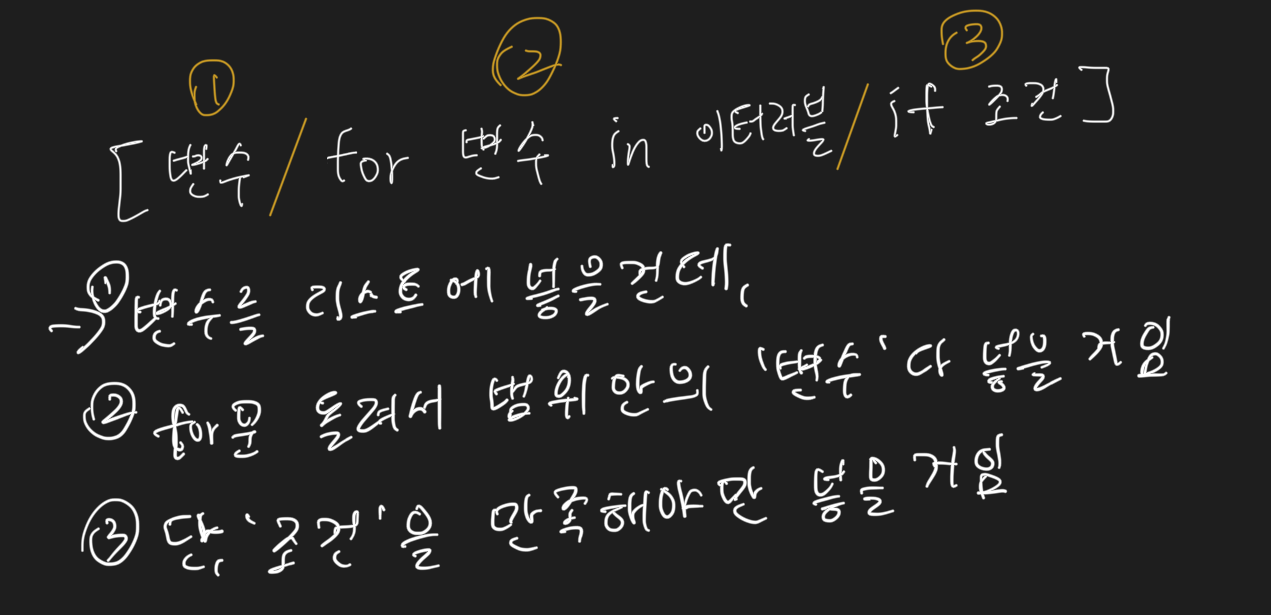 ① ② ③
[변수/for 변수 in 이터러블/if 조건]
→①변수를 리스트에 넣을건데,
② for문 돌려서 범위안의 '변수' 다 넣을거임
③ 단, '조건'을 만족해야만 넣을거임